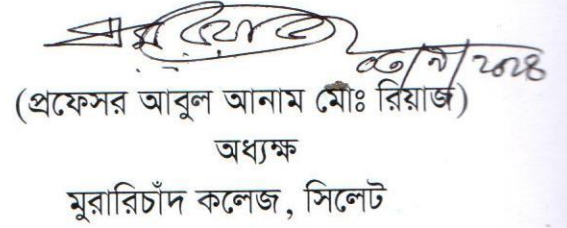 ০৩/৭/২০২৪
(প্রফেসর আবুল আনাম মোঃ রিয়াজ)
অধ্যক্ষ
মুরারিচাঁদ কলেজ, সিলেট